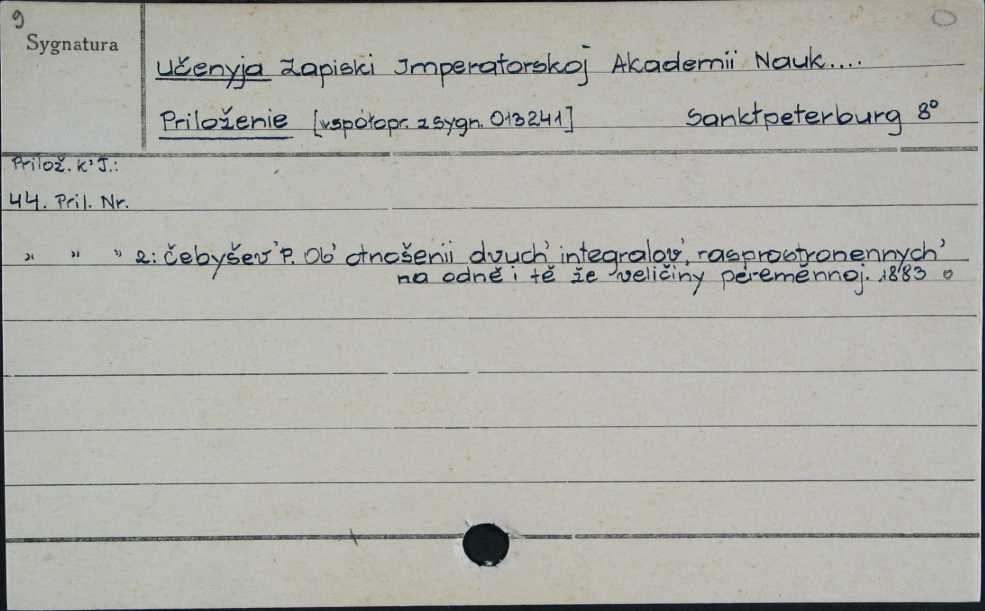 9
Sygnatura
Učenyja Zapiski Imperatorskoj Akademii Nauk....
Priloženie [współopr. z sygn. 013241] Sanktpeterburg 8°
Prilož. k' T.:
44. Pril. Nr.
" " " 2: Čebyšev' P. Ob' otnošenii dvuch' integralov', rasprostranennych'
na odně i tě že veličiny pereměnnoj. 1883